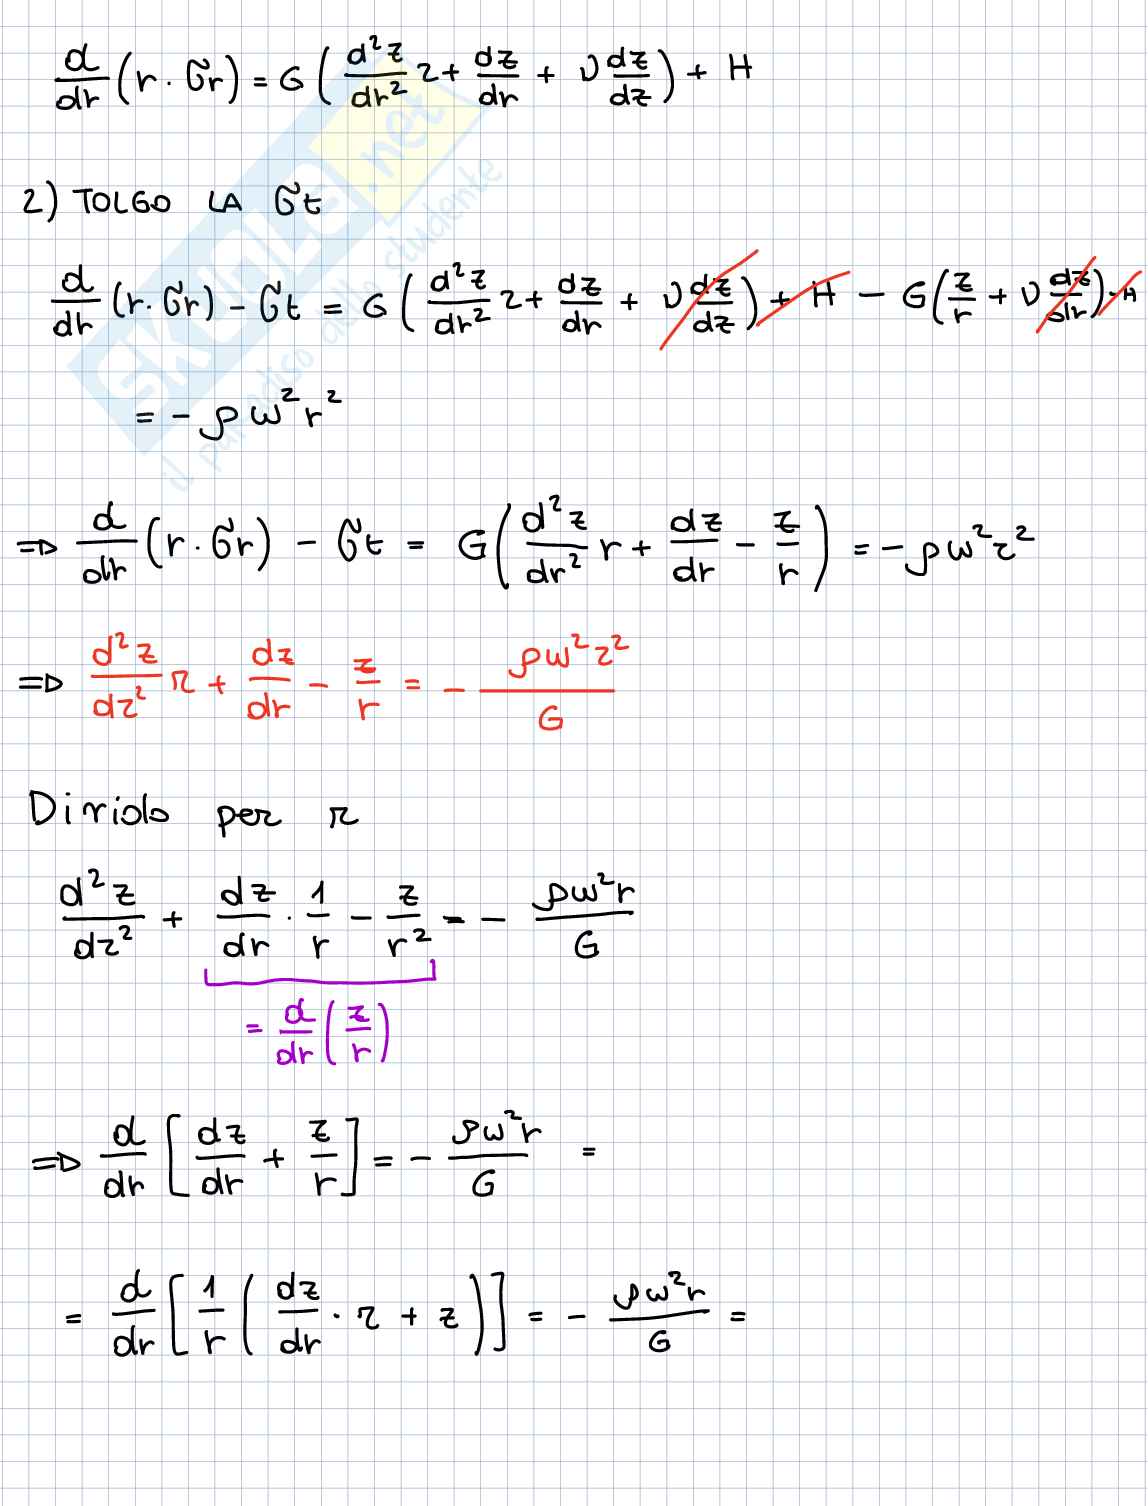 d/dr (r · σr) = G ( d²z/dr² r + dz/dr + ν dz/dz ) + H
2) TOLGO LA σt
d/dr (r · σr) - σt = G ( d²z/dr² r + dz/dr + ν dz/dz ) + H - G ( z/r + ν dz/dr ) - H
= - ρω²r²
⇒ d/dr (r · σr) - σt = G ( d²z/dr² r + dz/dr - z/r ) = - ρω²r²
⇒ d²z/dr² r + dz/dr - z/r = - ρω²r²/G
Dirido per r
d²z/dr² + dz/dr · 1/r - z/r² = - ρω²r/G
= d/dr ( z/r )
⇒ d/dr [ dz/dr + z/r ] = - ρω²r/G =
= d/dr [ 1/r ( dz/dr · r + z ) ] = - ρω²r/G =
SKUOLA.net
il paradiso dello studente